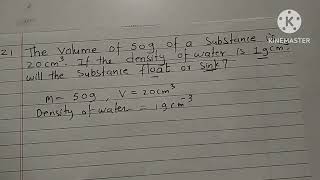 21 The volume of 50g of a substance is
20cm³. If the density of water is 1gcm⁻
will the substance float or sink?
M = 50g, V = 20cm³
Density of water = 1gcm⁻³
KINEMASTER